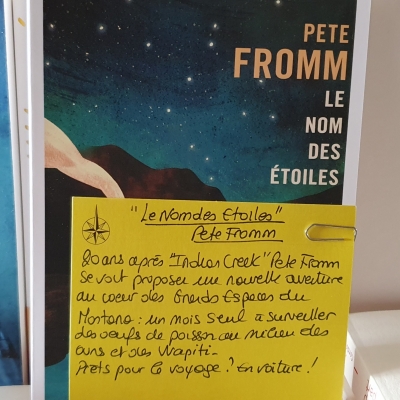 PETE
FROMM
LE
NOM
DES
ÉTOILES
"Le Nom des Etoiles"
Pete Fromm
20 ans après "Indian Creek" Pete Fromm
se voit proposer une nouvelle aventure
au coeur des Grands Espaces du
Montana : un mois seul à surveiller
des oeufs de poisson au milieu des
ours et des Wapiti-
Prêts pour le voyage ? En voiture !